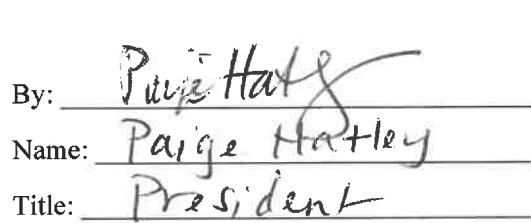 By: Paige Hatley
Name: Paige Hatley
Title: President